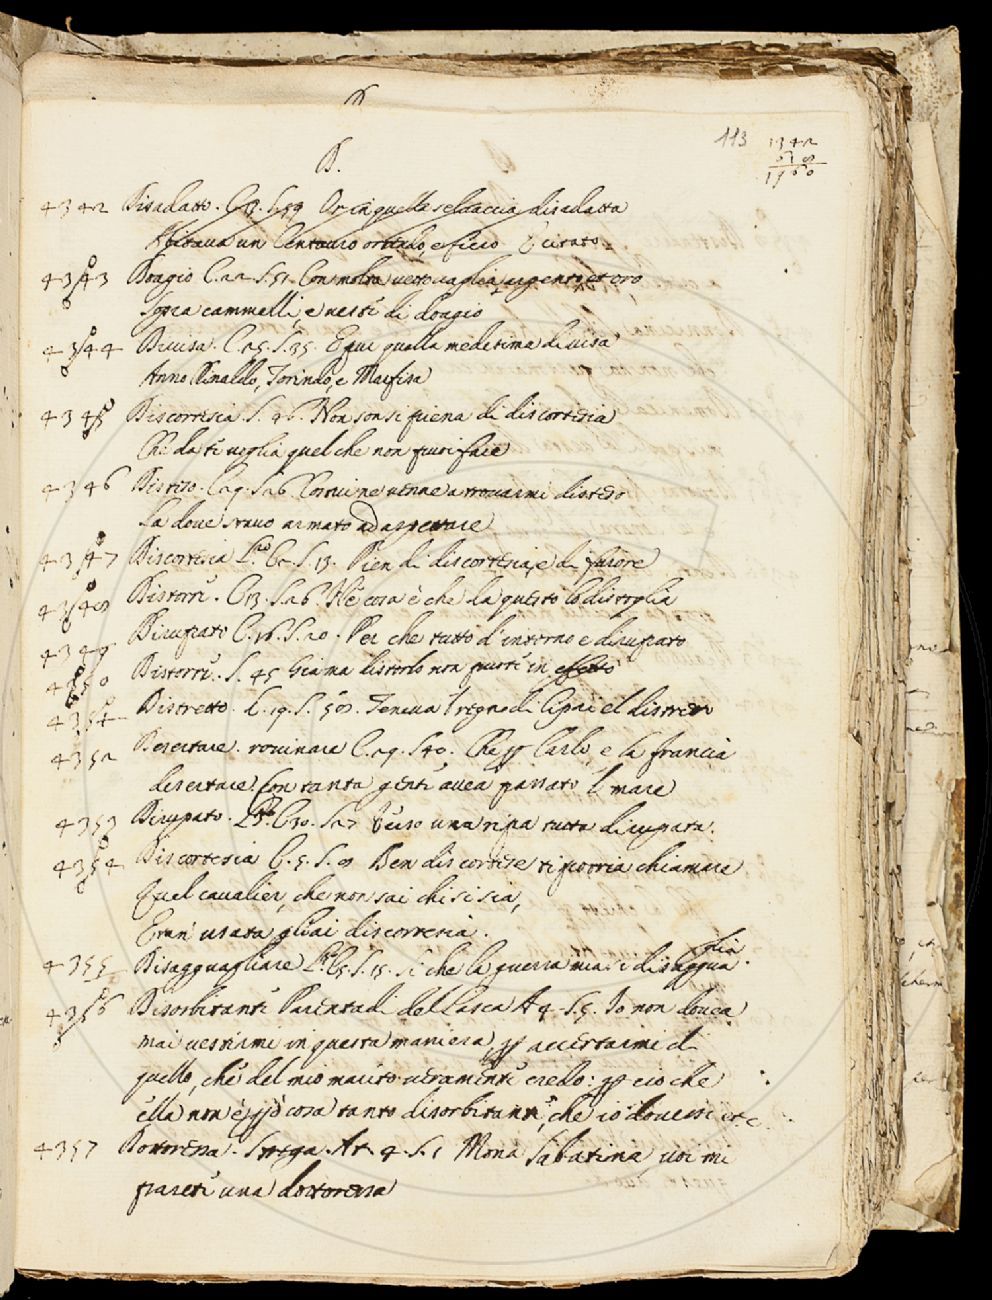 D
D.
113
1342
618
1960
4342 Disadatto. C. 13. S. 59 Or in quella selvaccia disadatta
Abitava un Centauro orrendo, e ficio È citato
4343 Doagio C. 22. S. 51. Con molta vettovaglia, argento, et oro
Sopra cammelli, e vesti di doagio
4344 Divisa. C. 25. S. 35. E qui quella medesima divisa
Anno Rinaldo, Torindo, e Marfisa
4345 Discortesia. S. 46. Non son sì piena di discortesia
Che da ti voglia quel che non puoi fare
4346 Disteso. C. 29. S. 26 Correr ne venne a trovarmi disteso
La dove stavo armato ad aspettare
4347 Discortesia L. C. S. 13. Pien di discortesia, e di furore
4348 Distorre. C. 13. S. 26. Nè cosa è che da questo lo distoglia
4349 Dirupato C. 16. S. 20. Per che tutto d'intorno e dirupato
4350 Distorre. S. 45 Già ma distorlo non puoti in effetto
4351 Distretto. C. 19. S. 58. Teneva l regno di Cipri e'l distretto
4352 Desertare. rovinare C. 29. S. 40. Che p Carlo, e la francia
disertare Con tanta gente avea passato l mare
4353 Dirupato. C. 30. S. 27 Verso una ripa tutta dirupata.
4354 Discortesia C. 5. S. 8 Ben discortese ti potria chiamare
Quel cavalier, che non sai chi si sia,
E'ran' usata gliai discortesia.
4355 Disagguagliare C. 5. S. 15. Si che la guerra mai si disaggua
glia.
4356 Disorbitante Parentadi del Lasca A 4. S. 5. Io non dovea
mai vestirmi in questa maniera, p accertarmi di
quello, che del mio marito veramente credo: p ciò che
ella non è però cosa tanto disorbitante, che io dovessi etc.
4357 Dottoressa. Strega. At. 4. S. 1 Mona Sabatina voi mi
parete una dottoressa